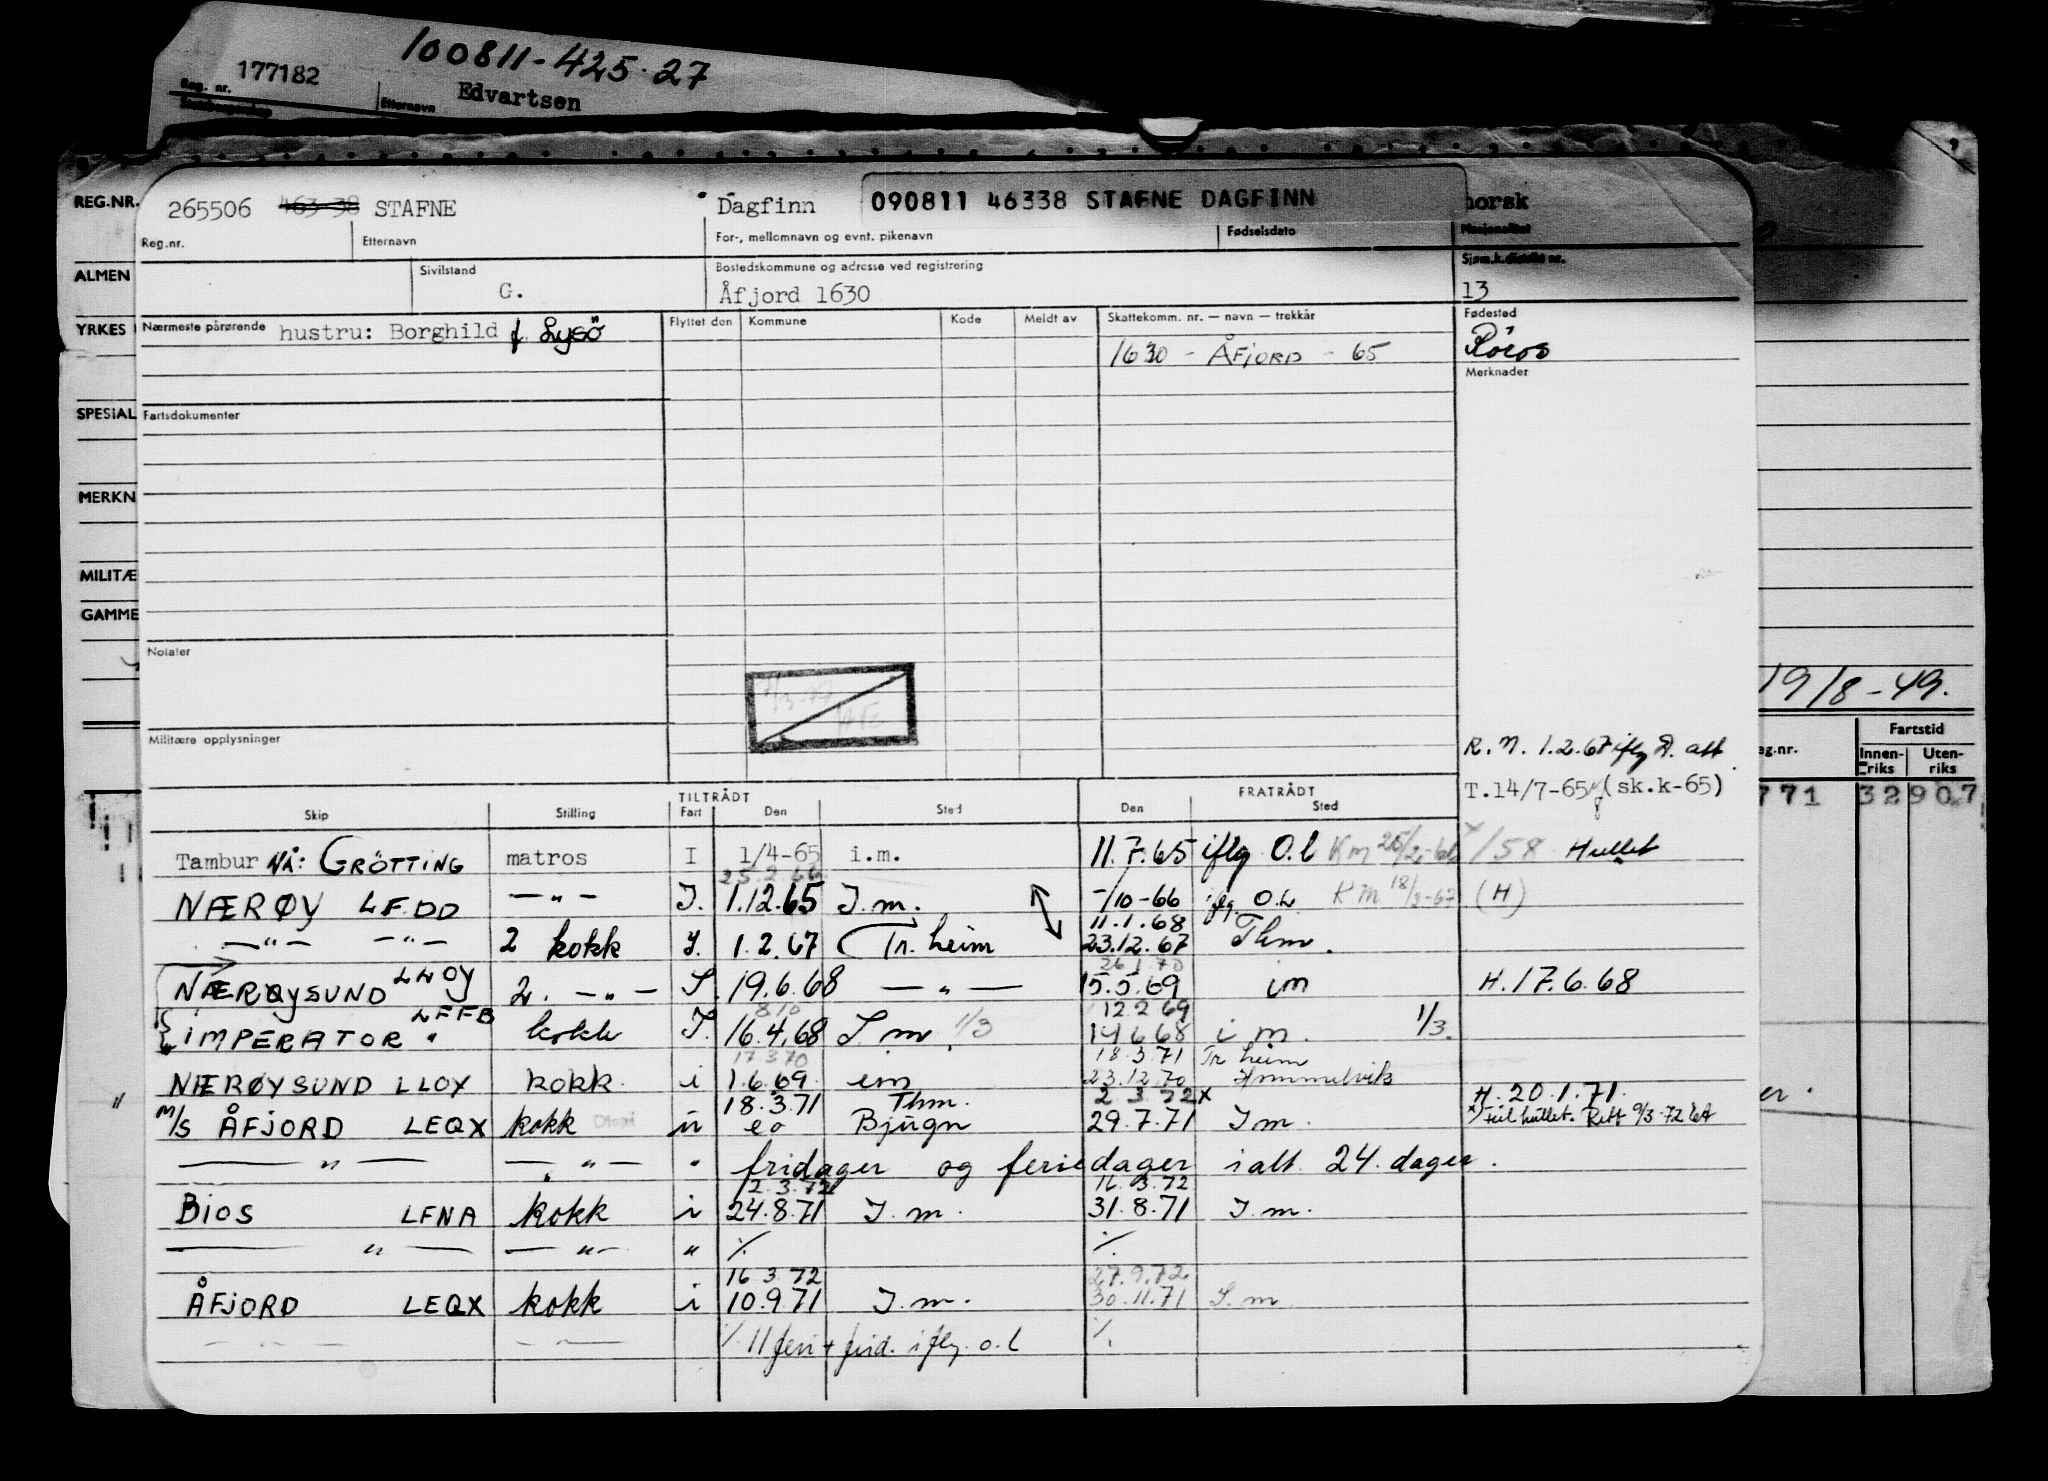 100811-425.27
177182
Reg. nr.
Etternavn
Edvartsen
REG.NR.
265506 463 38 STAFNE
Dagfinn
090811 46338 STAFNE DAGFINN
norsk
Reg.nr.
Etternavn
For-, mellomnavn og evnt. pikenavn
Fødselsdato
Nasjonalitet
ALMEN
Sivilstand
G.
Bostedskommune og adresse ved registrering
Åfjord 1630
Sjøm.k.distrikt nr.
13
YRKES
Nærmeste pårørende hustru: Borghild f. Lysö
Flyttet den
Kommune
Kode
Meldt av
Skattekomm. nr. — navn — trekkår
Fødested
1630 - ÅFJORD - 65
Røros
Merknader
SPESIAL
Fartsdokumenter
MERKN
MILITÆ
GAMME
Notater
19/8-49.
Militære opplysninger
R. N. 1.2.67 iflg A. att
Fartstid
ag.nr.
Innen-riks
Uten-riks
T.14/7-65 (sk.k-65)
771 32907
TILTRÅDT
FRATRÅDT
Skip
Stilling
Fart
Den
Sted
Den
Sted
Tambur NÅ: GRÖTTING matros I 1/4-65 i.m. 11.7.65 iflg O.l Km /58 Hullet
25.2.66
NÆRØY LFDD —"— I. 1.12.65 I.m. -/10-66 iflg O.L. Km 18/3-67 (H)
11.1.68
—"— —"— 2 kokk I. 1.2.67 Tr.heim 23.12.67 Thm.
26.1.70
NÆRØYSUND 2. —"— I. 19.6.68 —"— 15.5.69 im H.17.6.68
8/10 12.2.69
IMPERATOR LFFB kokk I. 16.4.68 I m 1/3 14.6.68 i m. 1/3.
17.3.70 18.3.71 Tr heim
NÆRØYSUND LLOX kokk. i 1.6.69 im 23.12.70 Hommelvik
18.3.71 Thm. 2 3.72 x H. 20.1.71.
M/S ÅFJORD LEQX kokk i eo Bjugn 29.7.71 I m. x) til hullet. Rett 9/3-72
—"— —"— " fridager og feriedager ialt 24 dager.
2.3.72 16.3.72
BIOS LFNA kokk i 24.8.71 I.m. 31.8.71 I.m.
—"— —"— " ./. ./.
16.3.72 27.9.72
ÅFJORD LEQX kokk i 10.9.71 I.m. 30.11.71 I.m
./. 11 feri + frid. iflg. o.l ./.